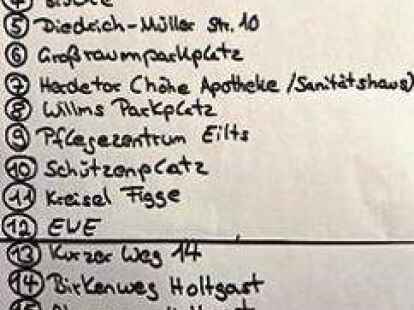 5 Diedrich-Müller Str. 10
6 Großraumparkplatz
7 Herdetor (höhe Apotheke /Sanitätshaus)
8 Willms Parkplatz
9 Pflegezentrum Eilts
10 Schützenplatz
11 Kreisel Figge
12 EWE
13 Kurzer Weg 14
14 Birkenweg Holtgast